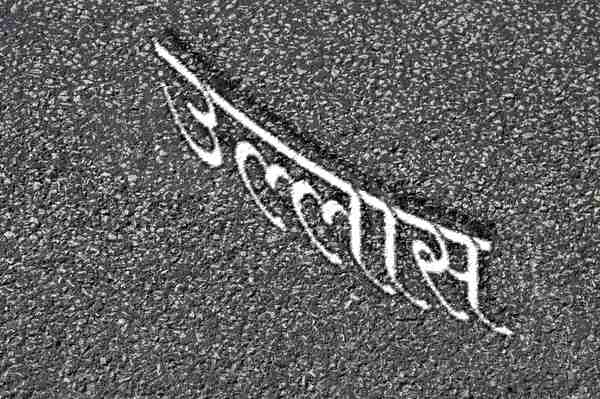 उल्लास